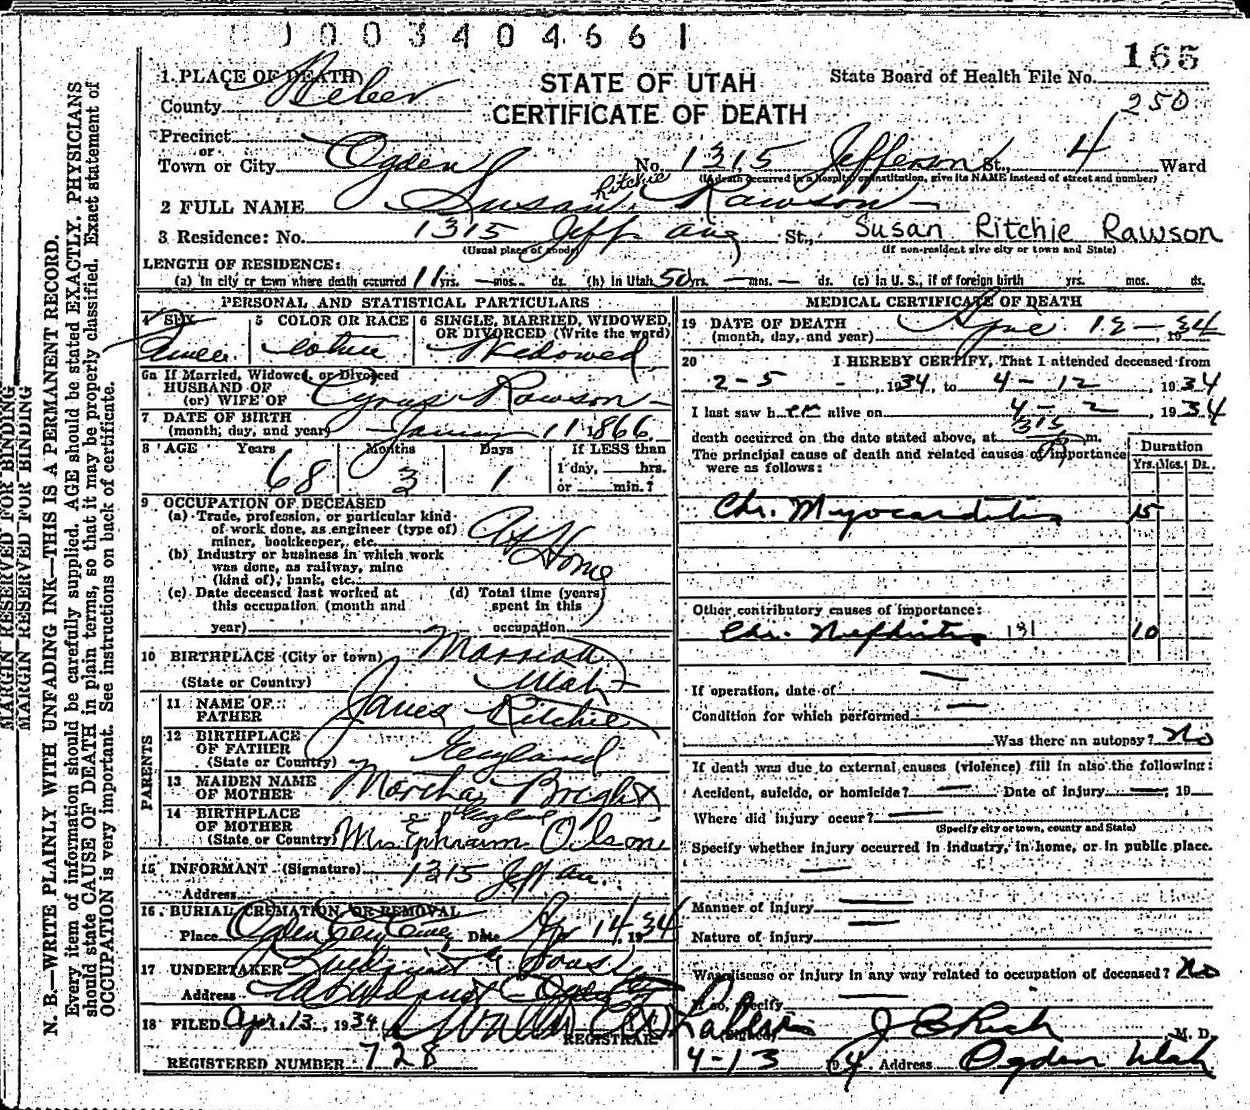 003404661
165
1. PLACE OF DEATH
STATE OF UTAH
CERTIFICATE OF DEATH
State Board of Health File No.
250
County Weber
Precinct
or
Town or City Ogden No. 1315 Jefferson St., 4 Ward
(If death occurred in a hospital or institution, give its NAME instead of street and number)
2 FULL NAME Susan Ritchie Rawson
3 Residence: No. 1315 Jeff ave St., Susan Ritchie Rawson
(Usual place of abode) (If non-resident give city or town and State)
LENGTH OF RESIDENCE:
(a) In city or town where death occurred 11 yrs. — mos. ds. (b) In Utah 50 yrs. — mos. — ds. (c) In U. S., if of foreign birth yrs. mos. ds.
PERSONAL AND STATISTICAL PARTICULARS
4 SEX
5 COLOR OR RACE
6 SINGLE, MARRIED, WIDOWED, OR DIVORCED (Write the word)
Widowed
6a If Married, Widowed, or Divorced
HUSBAND OF
(or) WIFE OF Cyrus Rawson
7 DATE OF BIRTH
(month, day, and year) 11 1866
8 AGE Years Months Days If LESS than
68 3 1 1 day, hrs.
or min.?
9 OCCUPATION OF DECEASED
(a) Trade, profession, or particular kind
of work done, as engineer (type of)
miner, bookkeeper, etc. At Home
(b) Industry or business in which work
was done, as railway, mine
(kind of), bank, etc.
(c) Date deceased last worked at
this occupation (month and
year)
(d) Total time (years)
spent in this
occupation
10 BIRTHPLACE (City or town)
(State or Country) Utah
PARENTS
11 NAME OF
FATHER James Ritchie
12 BIRTHPLACE
OF FATHER
(State or Country) England
13 MAIDEN NAME
OF MOTHER Martha Bright
14 BIRTHPLACE
OF MOTHER
(State or Country) England
Mrs Ephraim Olson
15 INFORMANT (Signature)
1315 Jeff av.
Address
16. BURIAL CREMATION OR REMOVAL
Place Ogden City Date Apr 14, 1934
17 UNDERTAKER
Address
18 FILED Apr. 13, 1934
REGISTRAR
REGISTERED NUMBER 728
MEDICAL CERTIFICATE OF DEATH
19 DATE OF DEATH
(month, day, and year) 12 - 1934
20 I HEREBY CERTIFY, That I attended deceased from
2-5 -, 1934, to 4-12, 1934
I last saw her alive on 4-2, 1934
death occurred on the date stated above, at 315 P m.
The principal cause of death and related causes of importance
were as follows:
Duration
Yrs. Mos. Ds.
Chr. Myocarditis 15
Other contributory causes of importance:
Chr. Nephritis 131 10
If operation, date of —
Condition for which performed —
Was there an autopsy? No
If death was due to external causes (violence) fill in also the following:
Accident, suicide, or homicide? — Date of injury —, 19
Where did injury occur? —
(Specify city or town, county and State)
Specify whether injury occurred in industry, in home, or in public place.
—
Manner of injury —
Nature of injury —
Was disease or injury in any way related to occupation of deceased? No
If so, specify —
(Signed) J E Rich M. D.
4-13 Address Ogden Utah
MARGIN RESERVED FOR BINDING
MARGIN RESERVED FOR BINDING
N. B.—WRITE PLAINLY WITH UNFADING INK—THIS IS A PERMANENT RECORD.
Every item of information should be carefully supplied. AGE should be stated EXACTLY. PHYSICIANS
should state CAUSE OF DEATH in plain terms, so that it may be properly classified. Exact statement of
OCCUPATION is very important. See instructions on back of certificate.